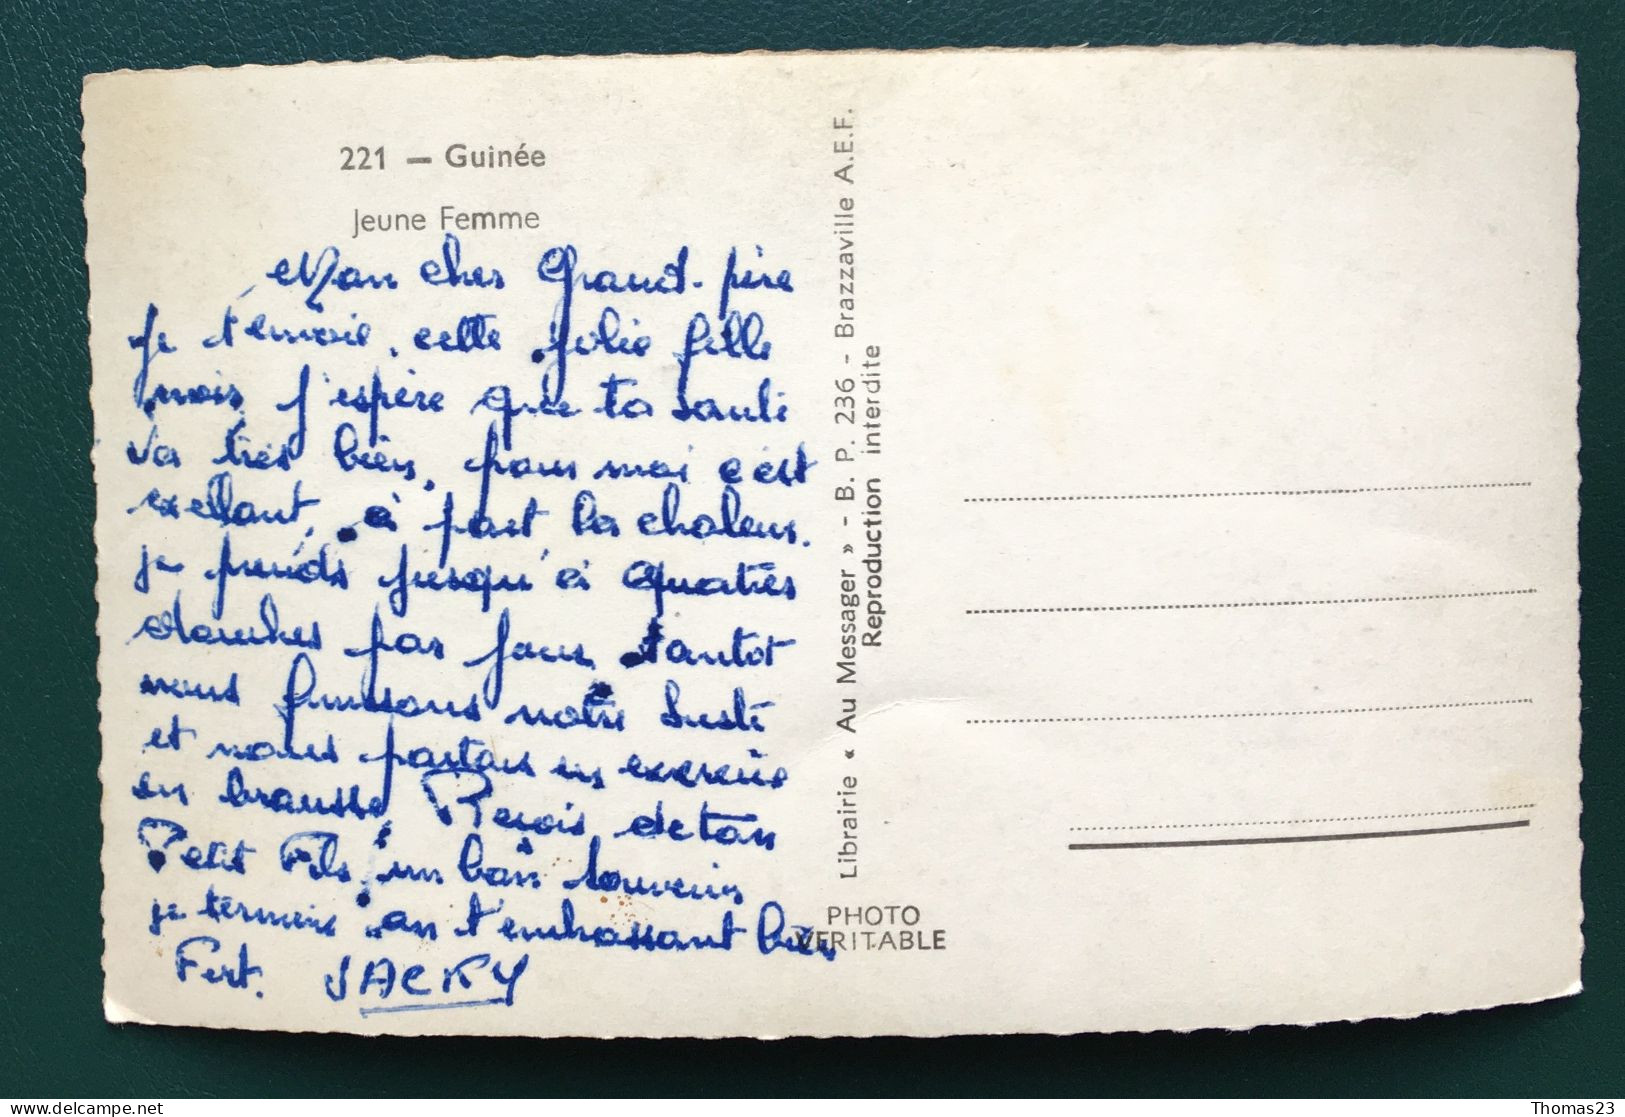 221 — Guinée
Jeune Femme
Mon cher Grand-père
je t'envoie, cette jolie fille
mois, j'espère que ta santé
va très bien, pour moi c'est
exellant, à part la chaleur.
je prends jusqu'à quatres
douches par jour, tantot
nous finissons notre sieste
et nous partons en exercice
en brousse, Reçois de ton
Petit Fils, un bon souvenir
je termine en t'embrassant bien
Fort. JACKY
Librairie « Au Messager » - B. P. 236 - Brazzaville A.E.F.
Reproduction interdite
PHOTO
VERITABLE
Thomas23